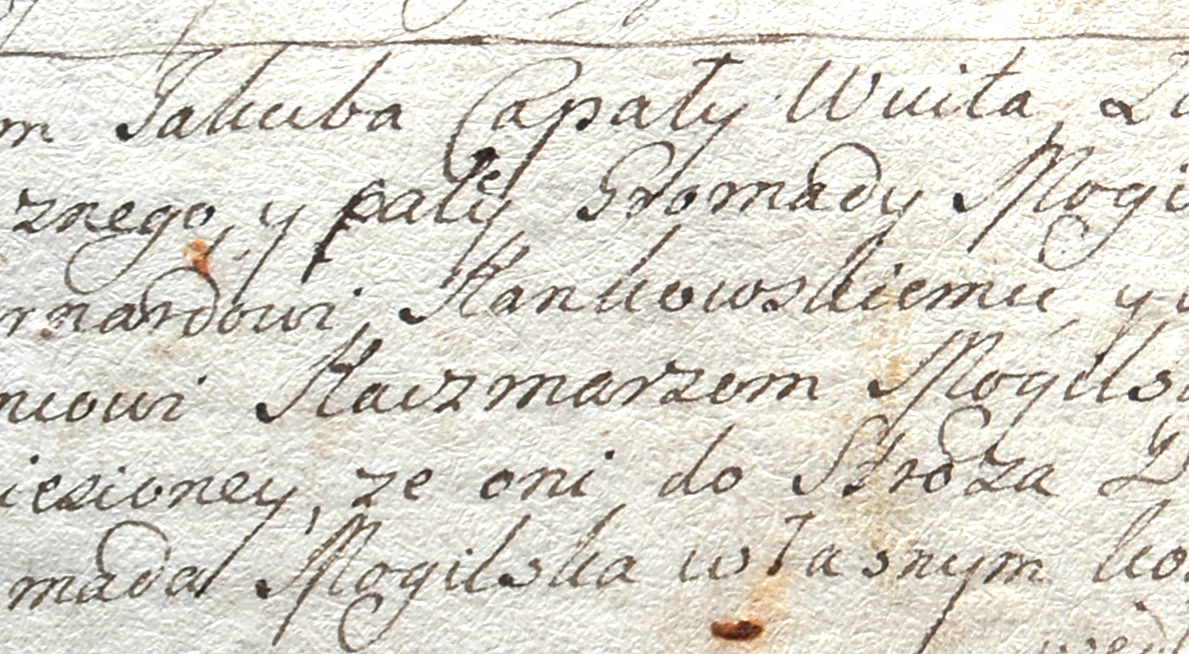 m Jakuba Capały Wuita, Zu
znego, y całey Gromady Mogi
rnardowi, Kankowskiemu, y
niowi Kaczmarzom Mogils
iesioney, ze oni do Stroza
mada Mogilska własnym kos